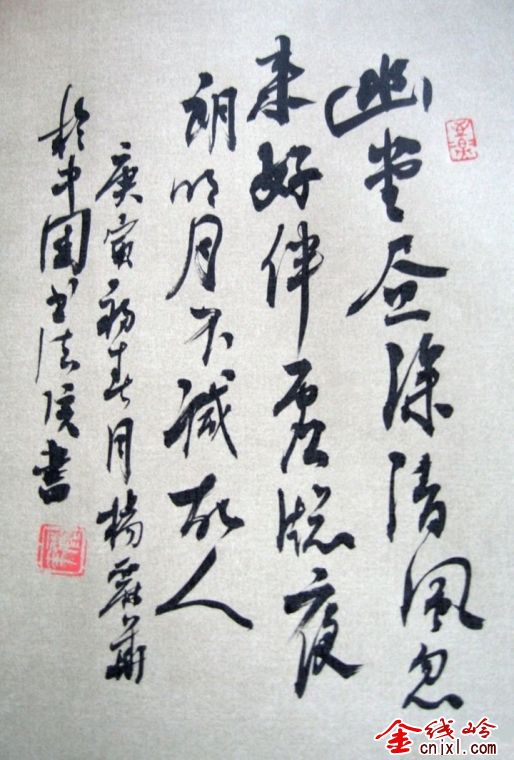 幽堂昼深清风忽
来好伴虚窗夜
朗明月不减故人
庚寅初春月杨
于中国书法院书
金线岭
cnjxl.com